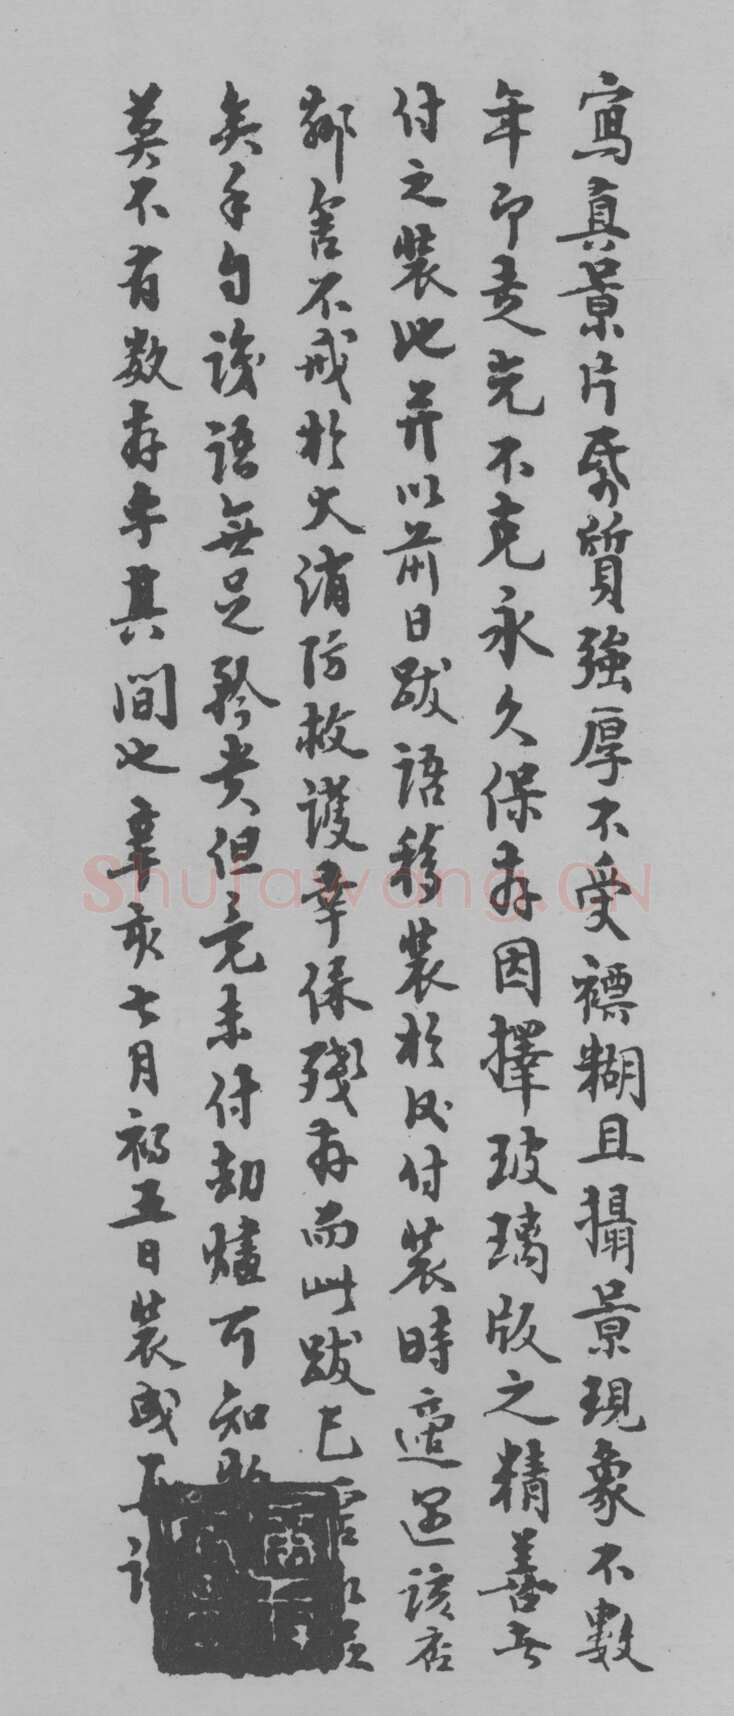 寫真景片紙質強厚不受褾糊且攝景現象不數
年即走光不克永久保存因擇玻璃版之精善者
付之裝池并以前日跋語移裝於後付裝時適遇該店
鄰舍不戒於火消防救護幸保殘存而此跋已
矣手自談語無足矜貴但竟未付劫燼可知
莫不有數存乎其間也辛亥七月初五日裝成再
Shufawang.CN